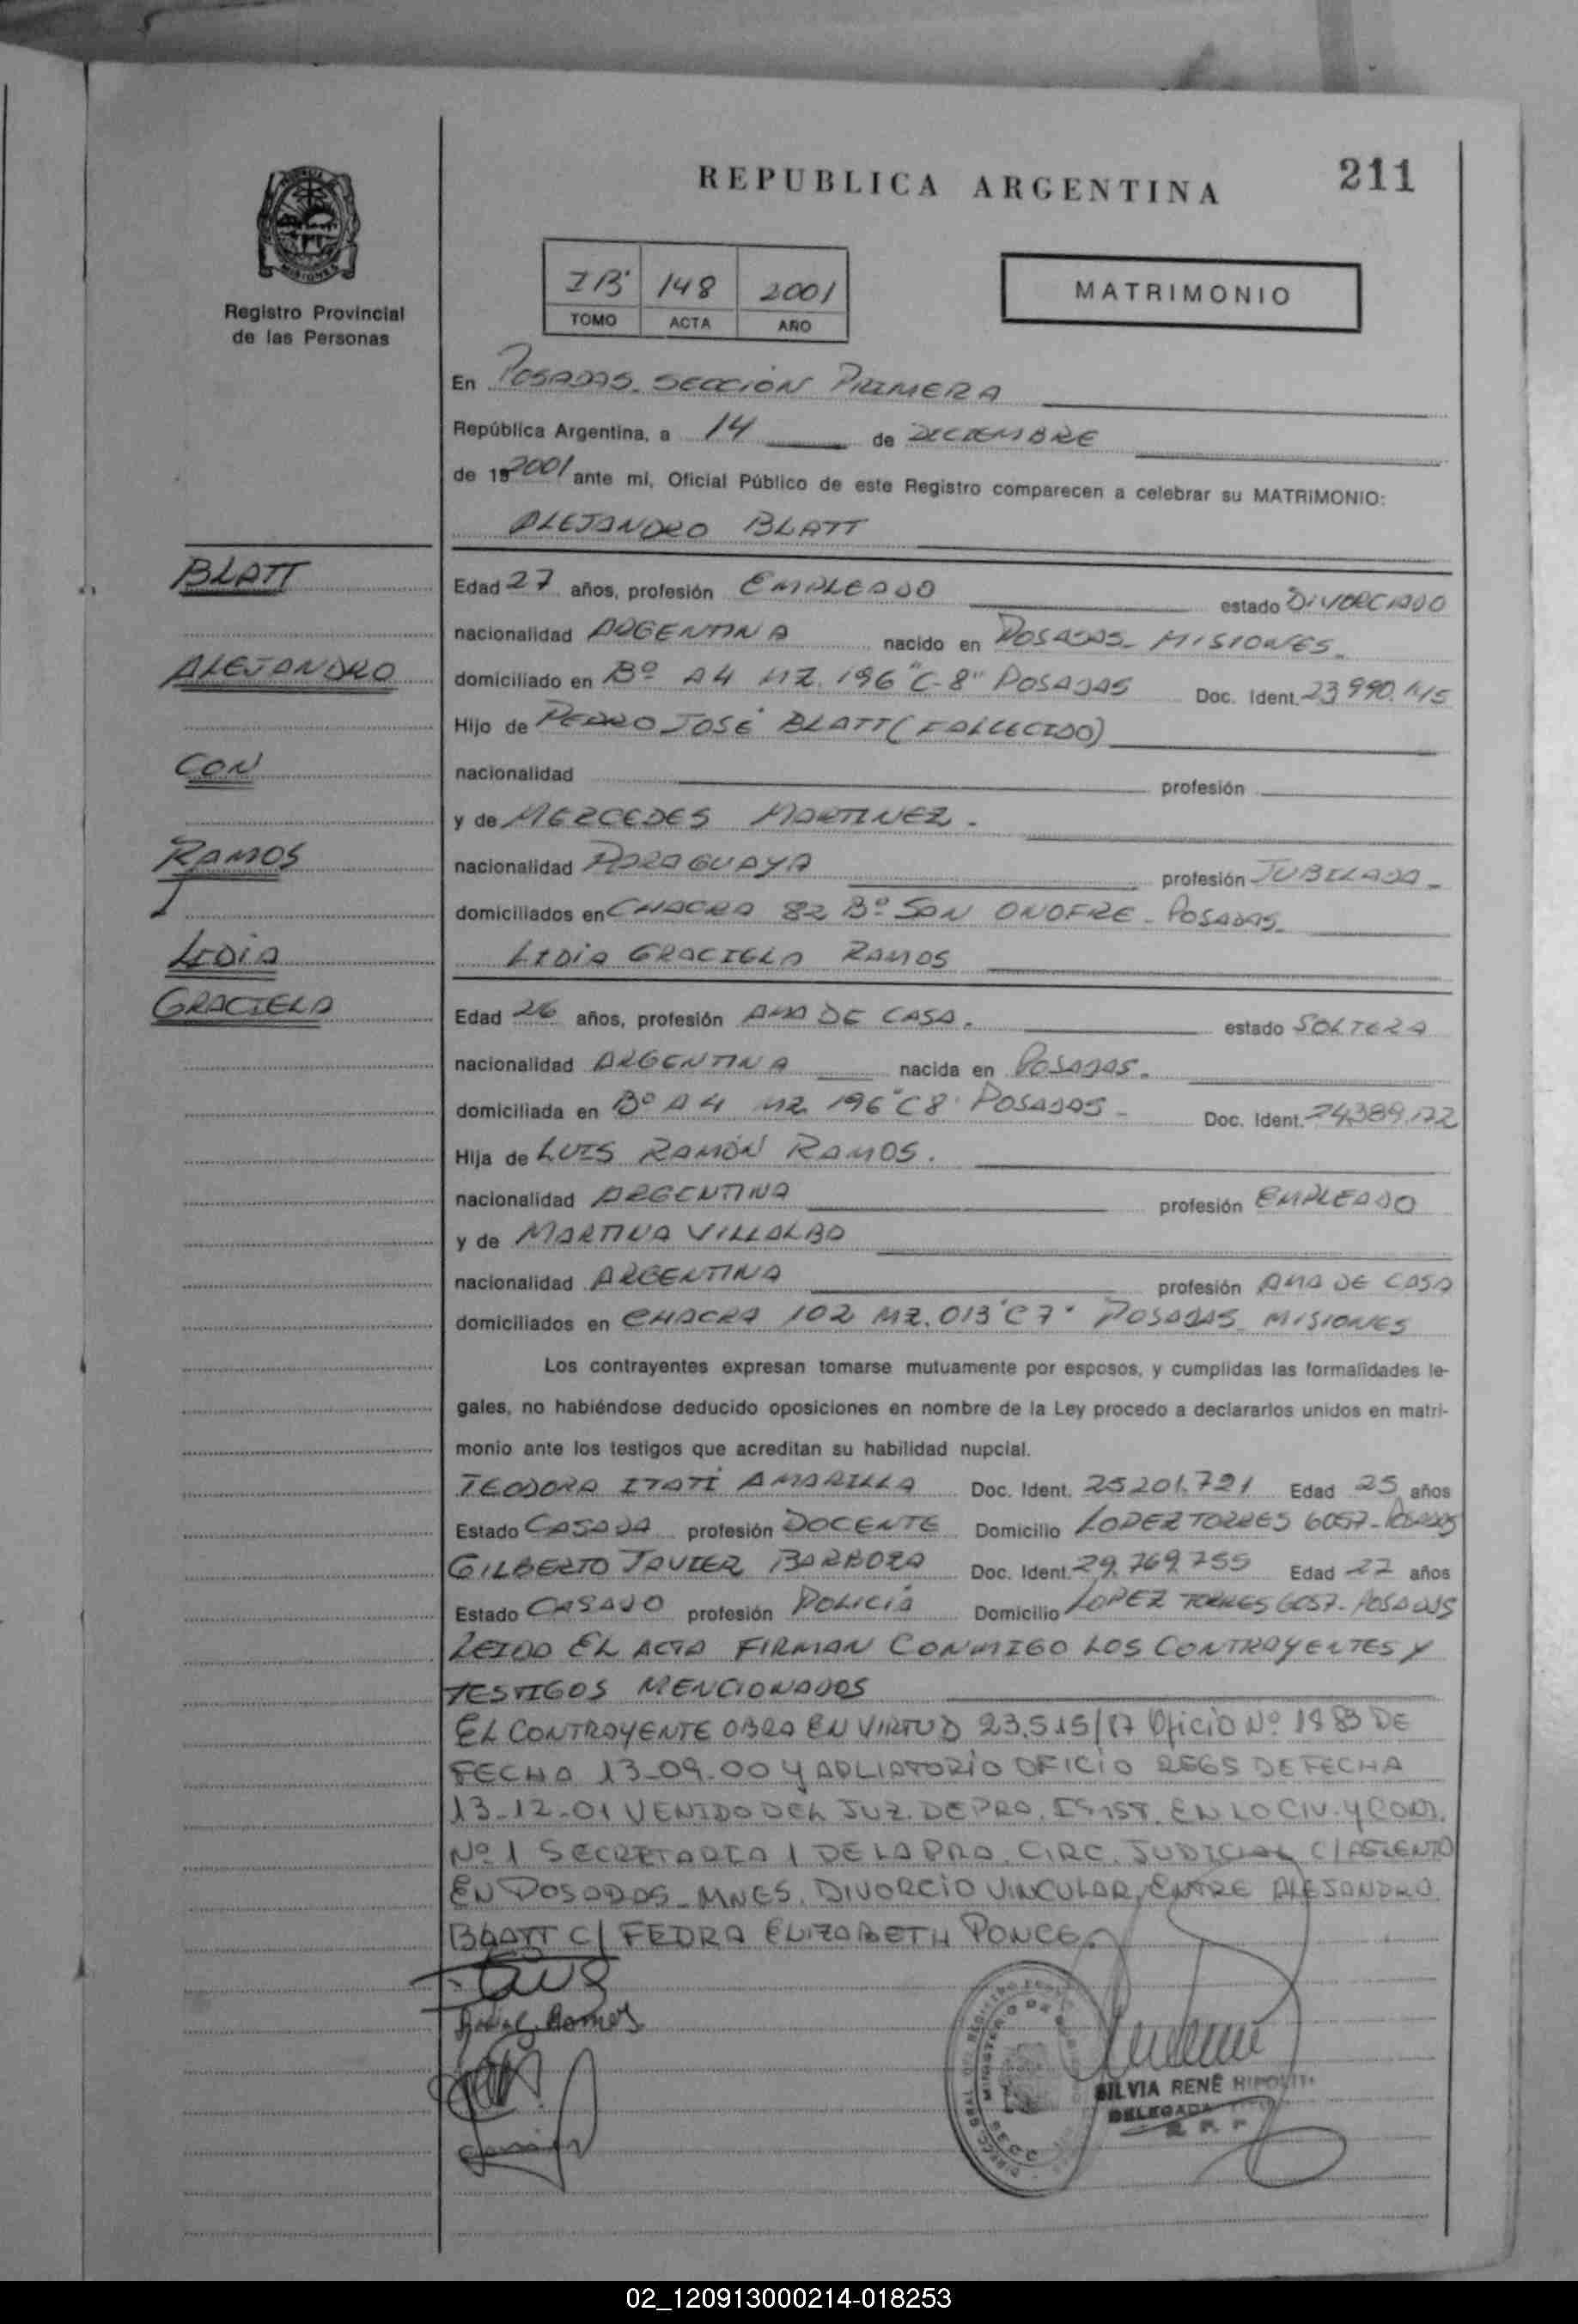 REPUBLICA ARGENTINA
211
MISIONES
Registro Provincial
de las Personas
148 2001
TOMO ACTA AÑO
MATRIMONIO
En POSADAS. SECCIÓN PRIMERA
República Argentina, a 14 de DICIEMBRE
de 19 2001 ante mi, Oficial Público de este Registro comparecen a celebrar su MATRIMONIO:
ALEJANDRO BLATT
BLATT
ALEJANDRO
CON
RAMOS
LIDIA
GRACIELA
Edad 27 años, profesión EMPLEADO estado DIVORCIADO
nacionalidad ARGENTINA nacido en POSADAS - MISIONES.
domiciliado en Bº A4 MZ. 196 "C-8" POSADAS Doc. Ident. 23.990.
Hijo de PEDRO JOSÉ BLATT (FALLECIDO)
nacionalidad profesión
y de MERCEDES MARTINEZ.
nacionalidad PARAGUAYA profesión JUBILADA -
domiciliados en CHACRA 82 Bº SAN ONOFRE - POSADAS.
LIDIA GRACIELA RAMOS
Edad 26 años, profesión AMA DE CASA. estado SOLTERA
nacionalidad ARGENTINA nacida en POSADAS.
domiciliada en Bº A4 MZ 196 "C8" POSADAS - Doc. Ident. 24.389.172
Hija de LUIS RAMÓN RAMOS.
nacionalidad ARGENTINA profesión EMPLEADO
y de MARTINA VILLALBA
nacionalidad ARGENTINA profesión AMA DE CASA
domiciliados en CHACRA 102 MZ. 013 "C7" POSADAS - MISIONES
Los contrayentes expresan tomarse mutuamente por esposos, y cumplidas las formalidades le-
gales, no habiéndose deducido oposiciones en nombre de la Ley procedo a declararlos unidos en matri-
monio ante los testigos que acreditan su habilidad nupcial.
TEODORA ITATÍ AMARILLA Doc. Ident. 25.201.721 Edad 25 años
Estado CASADA profesión DOCENTE Domicilio LOPEZ TORRES 6057 - POSADAS
GILBERTO JAVIER BARBOZA Doc. Ident. 29.769.755 Edad 27 años
Estado CASADO profesión POLICÍA Domicilio LOPEZ TORRES 6057 - POSADAS
LEIDO EL ACTA FIRMAN CONMIGO LOS CONTRAYENTES Y
TESTIGOS MENCIONADOS
EL CONTRAYENTE OBRA EN VIRTUD 23.515/87 Oficio Nº 1883 DE
FECHA 13-09-00 Y APLIATORIO OFICIO 2665 DE FECHA
13-12-01 VENIDO DEL JUZ. DE PRA. INST. EN LO CIV. Y COM.
Nº 1 SECRETARIA 1 DE LA PRA. CIRC. JUDICIAL C/ASIENTO
EN POSADAS - MNES. DIVORCIO VINCULAR ENTRE ALEJANDRO
BLATT C/ FEDRA ELIZABETH PONCE.
Lidia G. Ramos
SILVIA RENÉ HIPOLITO
DELEGADA
02_120913000214-018253